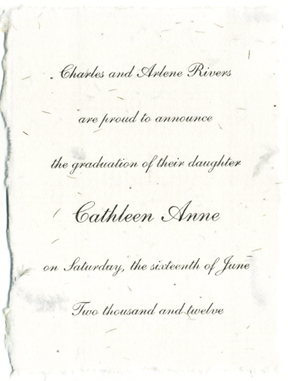 Charles and Arlene Rivers
are proud to announce
the graduation of their daughter
Cathleen Anne
on Saturday, the sixteenth of June
Two thousand and twelve